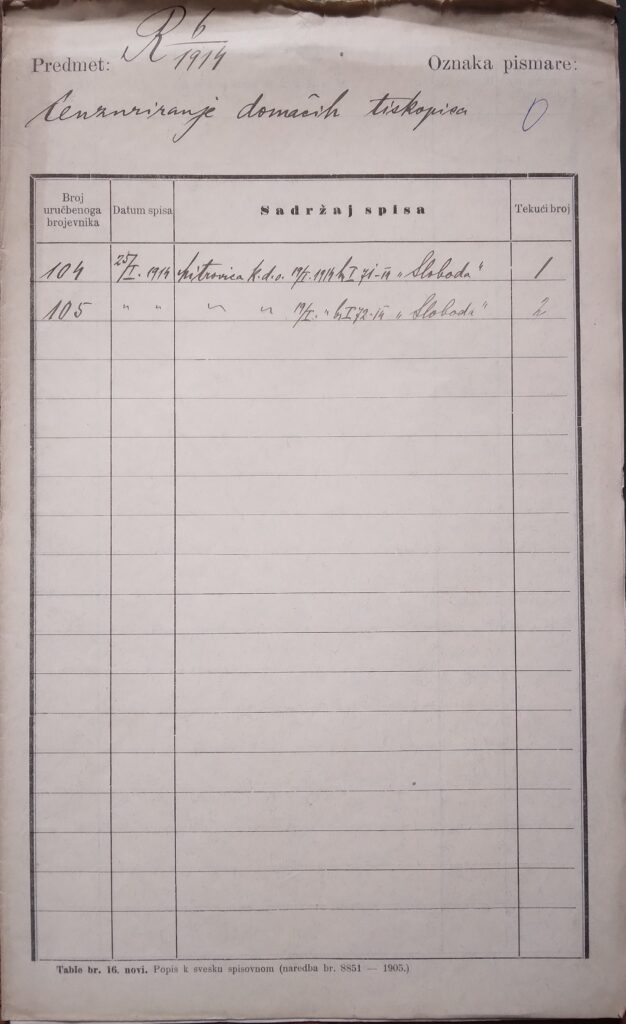 R 6/1914
Predmet:
Oznaka pismare:
Cenzuriranje domaćih tiskopisa
0
Broj uručbenoga brojevnika
Datum spisa
Sadržaj spisa
Tekući broj
104 25/I. 1914 Mitrovica k.d.o. 19/I. 1914 I 71-14 „Sloboda" 1
105 " " " " 19/I. " I 72-14 „Sloboda" 2
Table br. 16. novi. Popis k svesku spisovnom (naredba br. 8851 — 1905.)